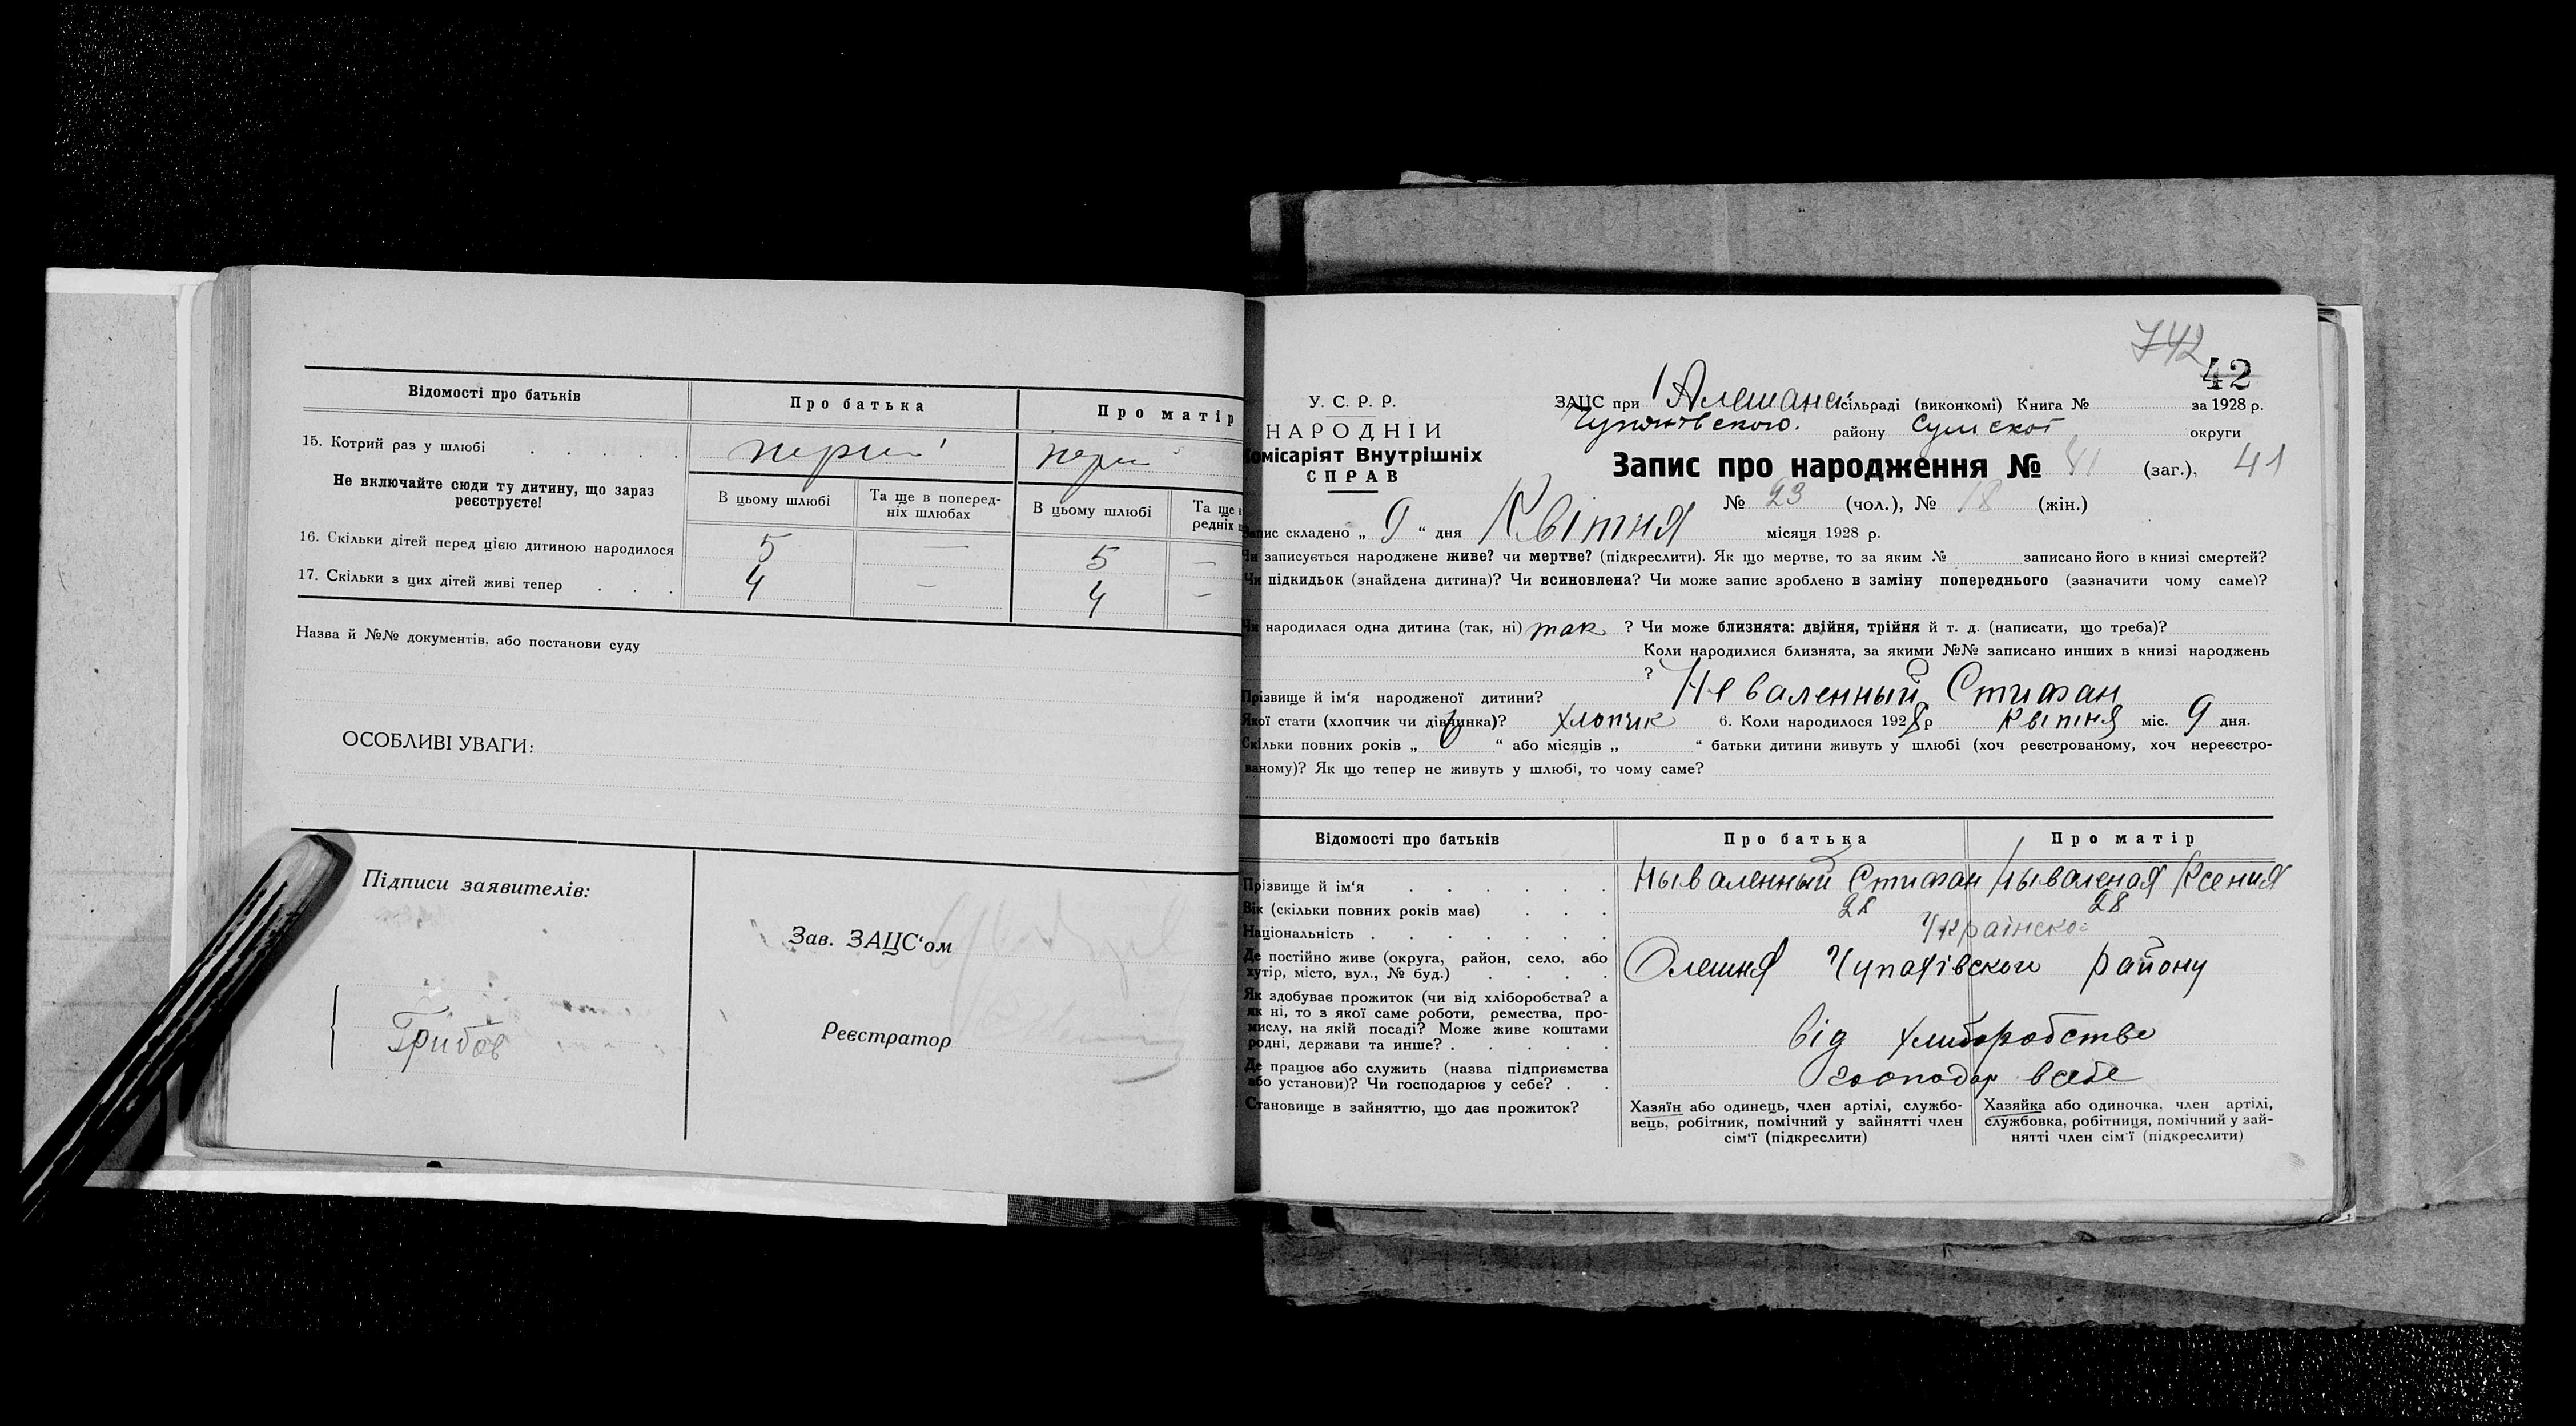 Відомості про батьків
Про батька
Про матір
15. Котрий раз у шлюбі
перши
перш
Не включайте сюди ту дитину, що зараз
реєструєте!
В цьому шлюбі
Та ще в поперед-
ніх шлюбах
В цьому шлюбі
Та ще
редніх
16. Скільки дітей перед цією дитиною народилося
5
—
5
—
17. Скільки з цих дітей живі тепер
4
—
4
—
Назва й №№ документів, або постанови суду
ОСОБЛИВІ УВАГИ:
Підписи заявителів:
Грибов
Зав. ЗАЦС'ом
Реєстратор
742
42
У. С. Р. Р.
НАРОДНІЙ
Комісаріят Внутрішніх
СПРАВ
ЗАЦС при 1 Алешанс. сільраді (виконкомі) Книга № за 1928 р.
району Сумскої округи
Запис про народження № 41 (заг.), 41
№ 23 (чол.), № 18 (жін.)
Запис складено „ 9 “ дня Квітня місяця 1928 р.
Чи записується народжене живе? чи мертве? (підкреслити). Як що мертве, то за яким № записано його в книзі смертей?
Чи підкидьок (знайдена дитина)? Чи всиновлена? Чи може запис зроблено в заміну попереднього (зазначити чому саме)?
Чи народилася одна дитина (так, ні) так ? Чи може близнята: двійня, трійня й т. д. (написати, що треба)?
Коли народилися близнята, за якими №№ записано инших в книзі народжень
?
Прізвище й ім'я народженої дитини? Неваленный Стифан
Якої стати (хлопчик чи дівчинка)? хлопчик 6. Коли народилося 1928 р квітня міс. 9 дня.
Скільки повних років „ 6 “ або місяців „ “ батьки дитини живуть у шлюбі (хоч реєстрованому, хоч нереєстро-
ваному)? Як що тепер не живуть у шлюбі, то чому саме?
Відомості про батьків
Про батька
Про матір
Прізвище й ім'я
Нываленный Стифан
Нываленая Ксения
Вік (скільки повних років має)
28
28
Національність
Українско
Де постійно живе (округа, район, село, або
хутір, місто, вул., № буд.)
Олешня Чупахівского району
Як здобуває прожиток (чи від хліборобства? а
як ні, то з якої саме роботи, ремества, про-
мислу, на якій посаді? Може живе коштами
родні, держави та инше?
від хлиборобстве
Де працює або служить (назва підприємства
або установи)? Чи господарює у себе?
господар всебе
Становище в зайняттю, що дає прожиток?
Хазяїн або одинець, член артілі, службо-
вець, робітник, помічний у зайнятті член
сім'ї (підкреслити)
Хазяйка або одиночка, член артілі,
службовка, робітниця, помічний у зай-
нятті член сім'ї (підкреслити)